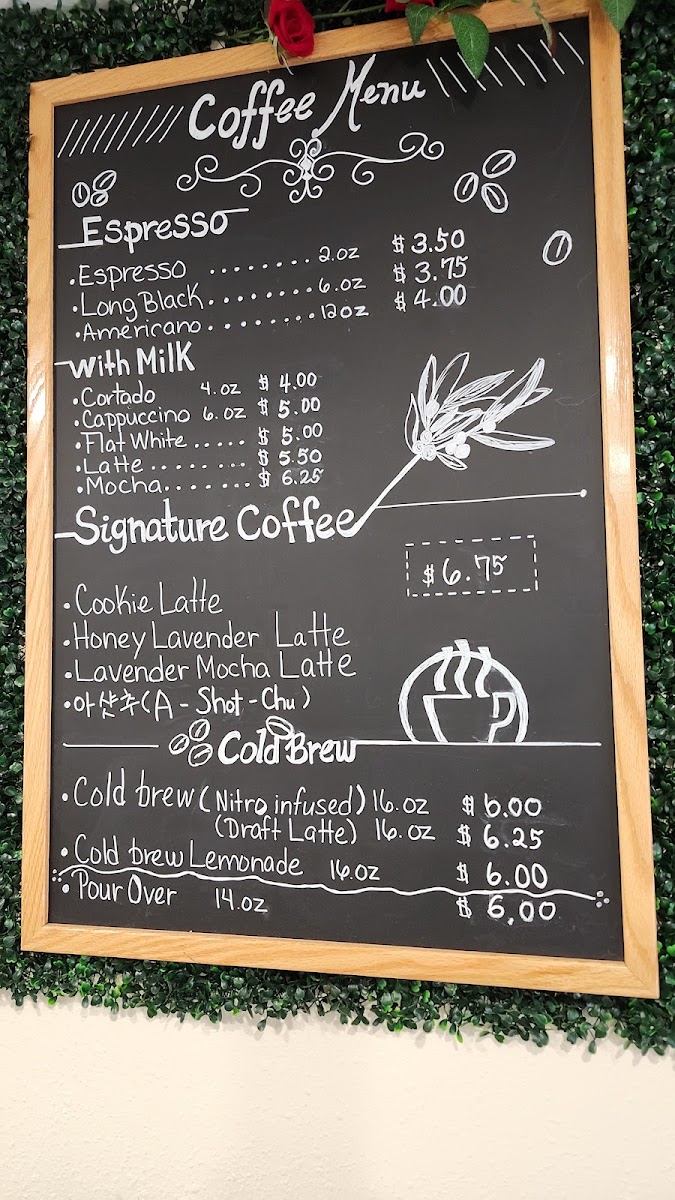 Coffee Menu
Espresso
• Espresso ........ 2.oz $3.50
• Long Black ........ 6.oz $3.75
• Americano ........ 12oz $4.00
with Milk
• Cortado 4.oz $4.00
• Cappuccino 6.oz $5.00
• Flat White ..... $5.00
• Latte ........ $5.50
• Mocha ....... $6.25
Signature Coffee
$6.75
• Cookie Latte
• Honey Lavender Latte
• Lavender Mocha Latte
• 아샷추 (A - Shot - Chu)
Cold Brew
• Cold brew (Nitro infused) 16.oz $6.00
(Draft Latte) 16.oz $6.25
• Cold brew Lemonade 16.oz $6.00
• Pour Over 14.oz $6.00